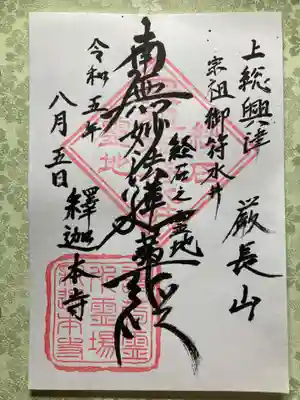 上総興津
宗祖御符水井
厳長山
南無妙法蓮華経
経石之霊地
令和五年
八月五日
釋迦本寺